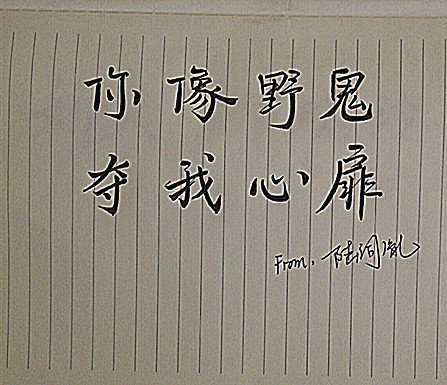 你像野鬼
夺我心扉
From.